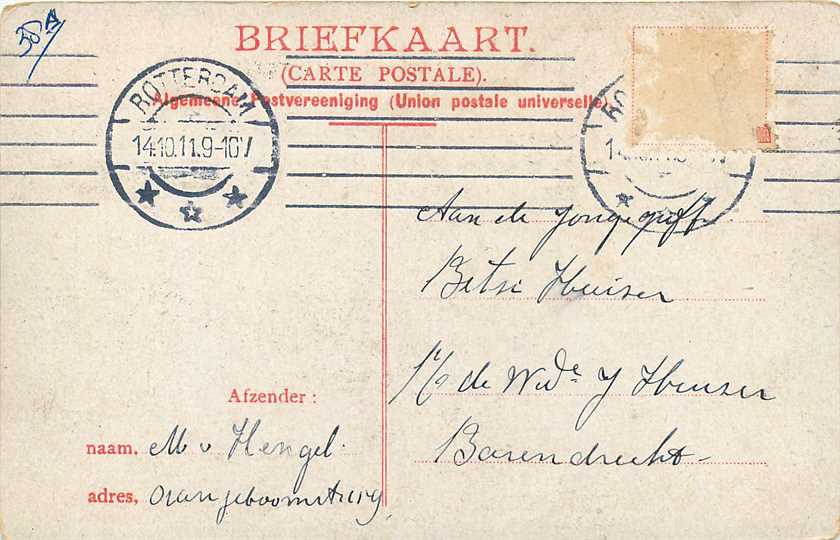 BRIEFKAART.
(CARTE POSTALE).
Algemeene Postvereeniging (Union postale universelle).
ROTTERDAM
14.10.11.9-10V
Aan de Jongejuff.
Betsi Huiser
p/a de Wede J Huiser
Barendrecht
Afzender:
naam, M v Hengel.
adres,